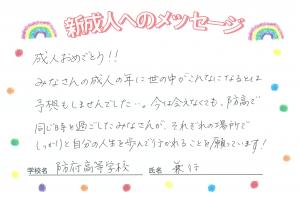 新成人へのメッセージ
成人おめでとう!!
みなさんの成人の年に世の中がこんなになるとは
予想もしませんでした…。今は会えなくても、防高で
同じ時を過ごしたみなさんが、それぞれの場所で
しっかりと自分の人生を歩んで行かれることを願っています!
学校名 防府高等学校 氏名 兼行